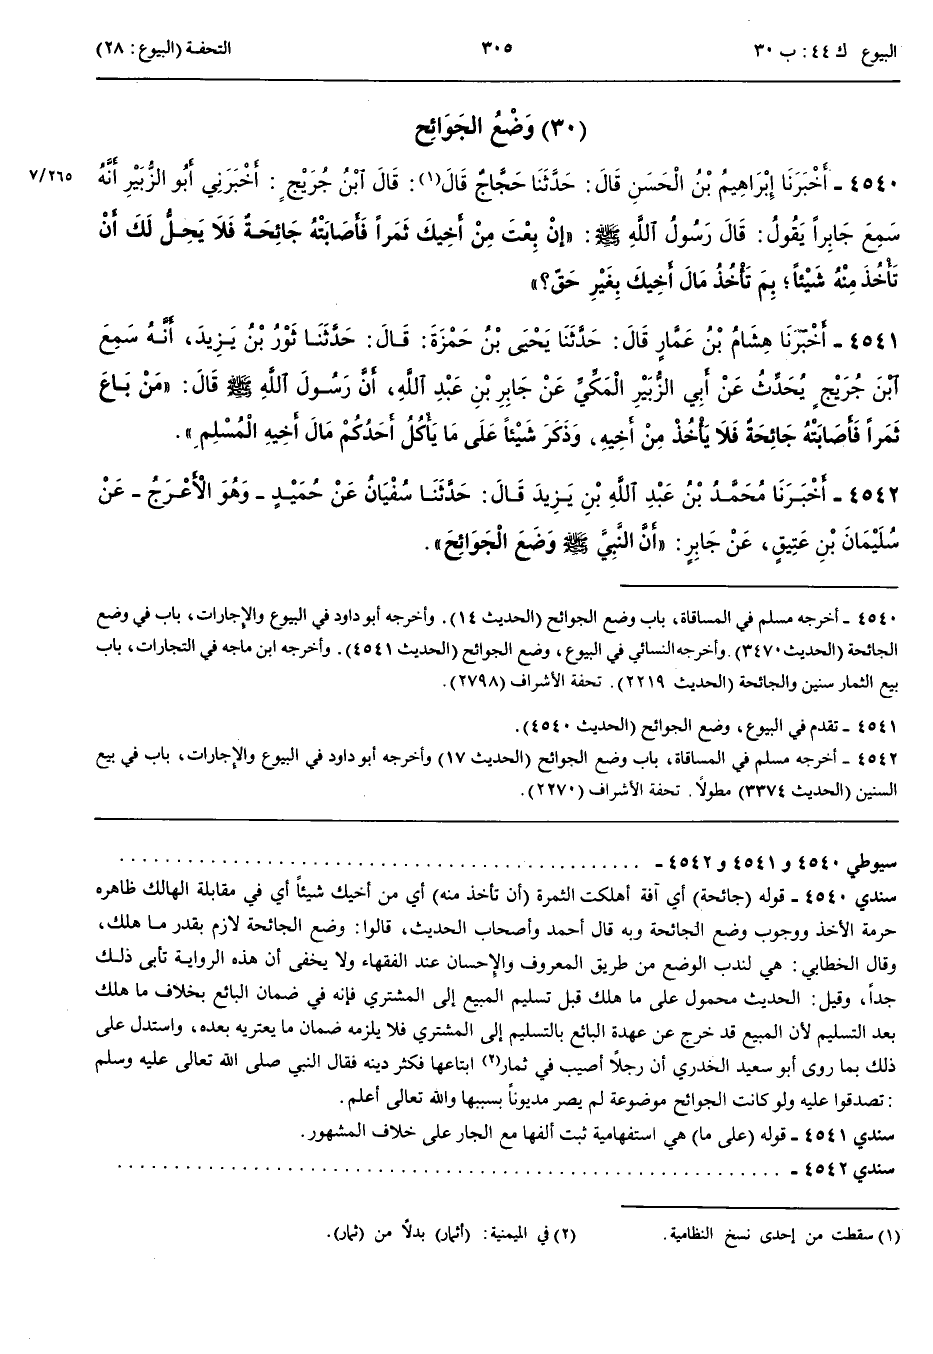 البيوع ك ٤٤: ب ٣٠
٣٠٥
التحفة (البيوع: ٢٨)
(٣٠) وَضْعُ الجَوَائِحِ
٤٥٤٠ ـ أَخْبَرَنَا إِبْرَاهِيمُ بْنُ الْحَسَنِ قَالَ: حَدَّثَنَا حَجَّاجٌ قَالَ(١): قَالَ ٱبْنُ جُرَيْجٍ: أَخْبَرَنِي أَبُو الزُّبَيْرِ أَنَّهُ
٧/٢٦٥
سَمِعَ جَابِراً يَقُولُ: قَالَ رَسُولُ ٱللَّهِ ﷺ: «إِنْ بِعْتَ مِنْ أَخِيكَ ثَمَراً فَأَصَابَتْهُ جَائِحَةٌ فَلَا يَحِلُّ لَكَ أَنْ
تَأْخُذَ مِنْهُ شَيْئاً؛ بِمَ تَأْخُذُ مَالَ أَخِيكَ بِغَيْرِ حَقٍّ؟»
٤٥٤١ ـ أَخْبَرَنَا هِشَامُ بْنُ عَمَّارٍ قَالَ: حَدَّثَنَا يَحْيَى بْنُ حَمْزَةَ: قَالَ: حَدَّثَنَا ثَوْرُ بْنُ يَزِيدَ، أَنَّهُ سَمِعَ
ٱبْنَ جُرَيْجٍ يُحَدِّثُ عَنْ أَبِي الزُّبَيْرِ الْمَكِّيِّ عَنْ جَابِرِ بْنِ عَبْدِ ٱللَّهِ، أَنَّ رَسُولَ ٱللَّهِ ﷺ قَالَ: «مَنْ بَاعَ
ثَمَراً فَأَصَابَتْهُ جَائِحَةٌ فَلَا يَأْخُذْ مِنْ أَخِيهِ، وَذَكَرَ شَيْئاً عَلَى مَا يَأْكُلُ أَحَدُكُمْ مَالَ أَخِيهِ الْمُسْلِمِ».
٤٥٤٢ ـ أَخْبَرَنَا مُحَمَّدُ بْنُ عَبْدِ ٱللَّهِ بْنِ يَزِيدَ قَالَ: حَدَّثَنَا سُفْيَانُ عَنْ حُمَيْدٍ ـ وَهُوَ الْأَعْرَجُ ـ عَنْ
سُلَيْمَانَ بْنِ عَتِيقٍ، عَنْ جَابِرٍ: «أَنَّ النَّبِيَّ ﷺ وَضَعَ الْجَوَائِحَ».
٤٥٤٠ ـ أخرجه مسلم في المساقاة، باب وضع الجوائح (الحديث ١٤). وأخرجه أبو داود في البيوع والإجارات، باب في وضع
الجائحة (الحديث ٣٤٧٠). وأخرجه النسائي في البيوع، وضع الجوائح (الحديث ٤٥٤١). وأخرجه ابن ماجه في التجارات، باب
بيع الثمار سنين والجائحة (الحديث ٢٢١٩). تحفة الأشراف (٢٧٩٨).
٤٥٤١ ـ تقدم في البيوع، وضع الجوائح (الحديث ٤٥٤٠).
٤٥٤٢ ـ أخرجه مسلم في المساقاة، باب وضع الجوائح (الحديث ١٧) وأخرجه أبو داود في البيوع والإجارات، باب في بيع
السنين (الحديث ٣٣٧٤) مطولاً. تحفة الأشراف (٢٢٧٠).
سيوطي ٤٥٤٠ و ٤٥٤١ و ٤٥٤٢ ـ ................................................
سندي ٤٥٤٠ ـ قوله (جائحة) أي آفة أهلكت الثمرة (أن تأخذ منه) أي من أخيك شيئاً أي في مقابلة الهالك ظاهره
حرمة الأخذ ووجوب وضع الجائحة وبه قال أحمد وأصحاب الحديث، قالوا: وضع الجائحة لازم بقدر ما هلك،
وقال الخطابي: هي لندب الوضع من طريق المعروف والإحسان عند الفقهاء ولا يخفى أن هذه الرواية تأبى ذلك
جداً، وقيل: الحديث محمول على ما هلك قبل تسليم المبيع إلى المشتري فإنه في ضمان البائع بخلاف ما هلك
بعد التسليم لأن المبيع قد خرج عن عهدة البائع بالتسليم إلى المشتري فلا يلزمه ضمان ما يعتريه بعده، واستدل على
ذلك بما روى أبو سعيد الخدري أن رجلاً أصيب في ثمار(٢) ابتاعها فكثر دينه فقال النبي صلى الله تعالى عليه وسلم
: تصدقوا عليه ولو كانت الجوائح موضوعة لم يصر مديوناً بسببها والله تعالى أعلم.
سندي ٤٥٤١ ـ قوله (على ما) هي استفهامية ثبت ألفها مع الجار على خلاف المشهور.
سندي ٤٥٤٢ ـ ............................................................
(١) سقطت من إحدى نسخ النظامية.
(٢) في الميمنية: (أثمار) بدلاً من (ثمار).